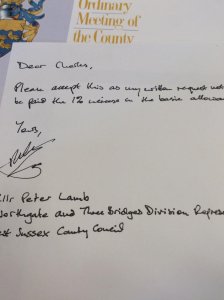 Ordinary
Meeting of
the County
Dear Charles,
Please accept this as my written request not
be paid the 1% increase in the basic allowan
Yours,
Cllr Peter Lamb
Northgate and Three Bridges Division Represe
est Sussex County Council